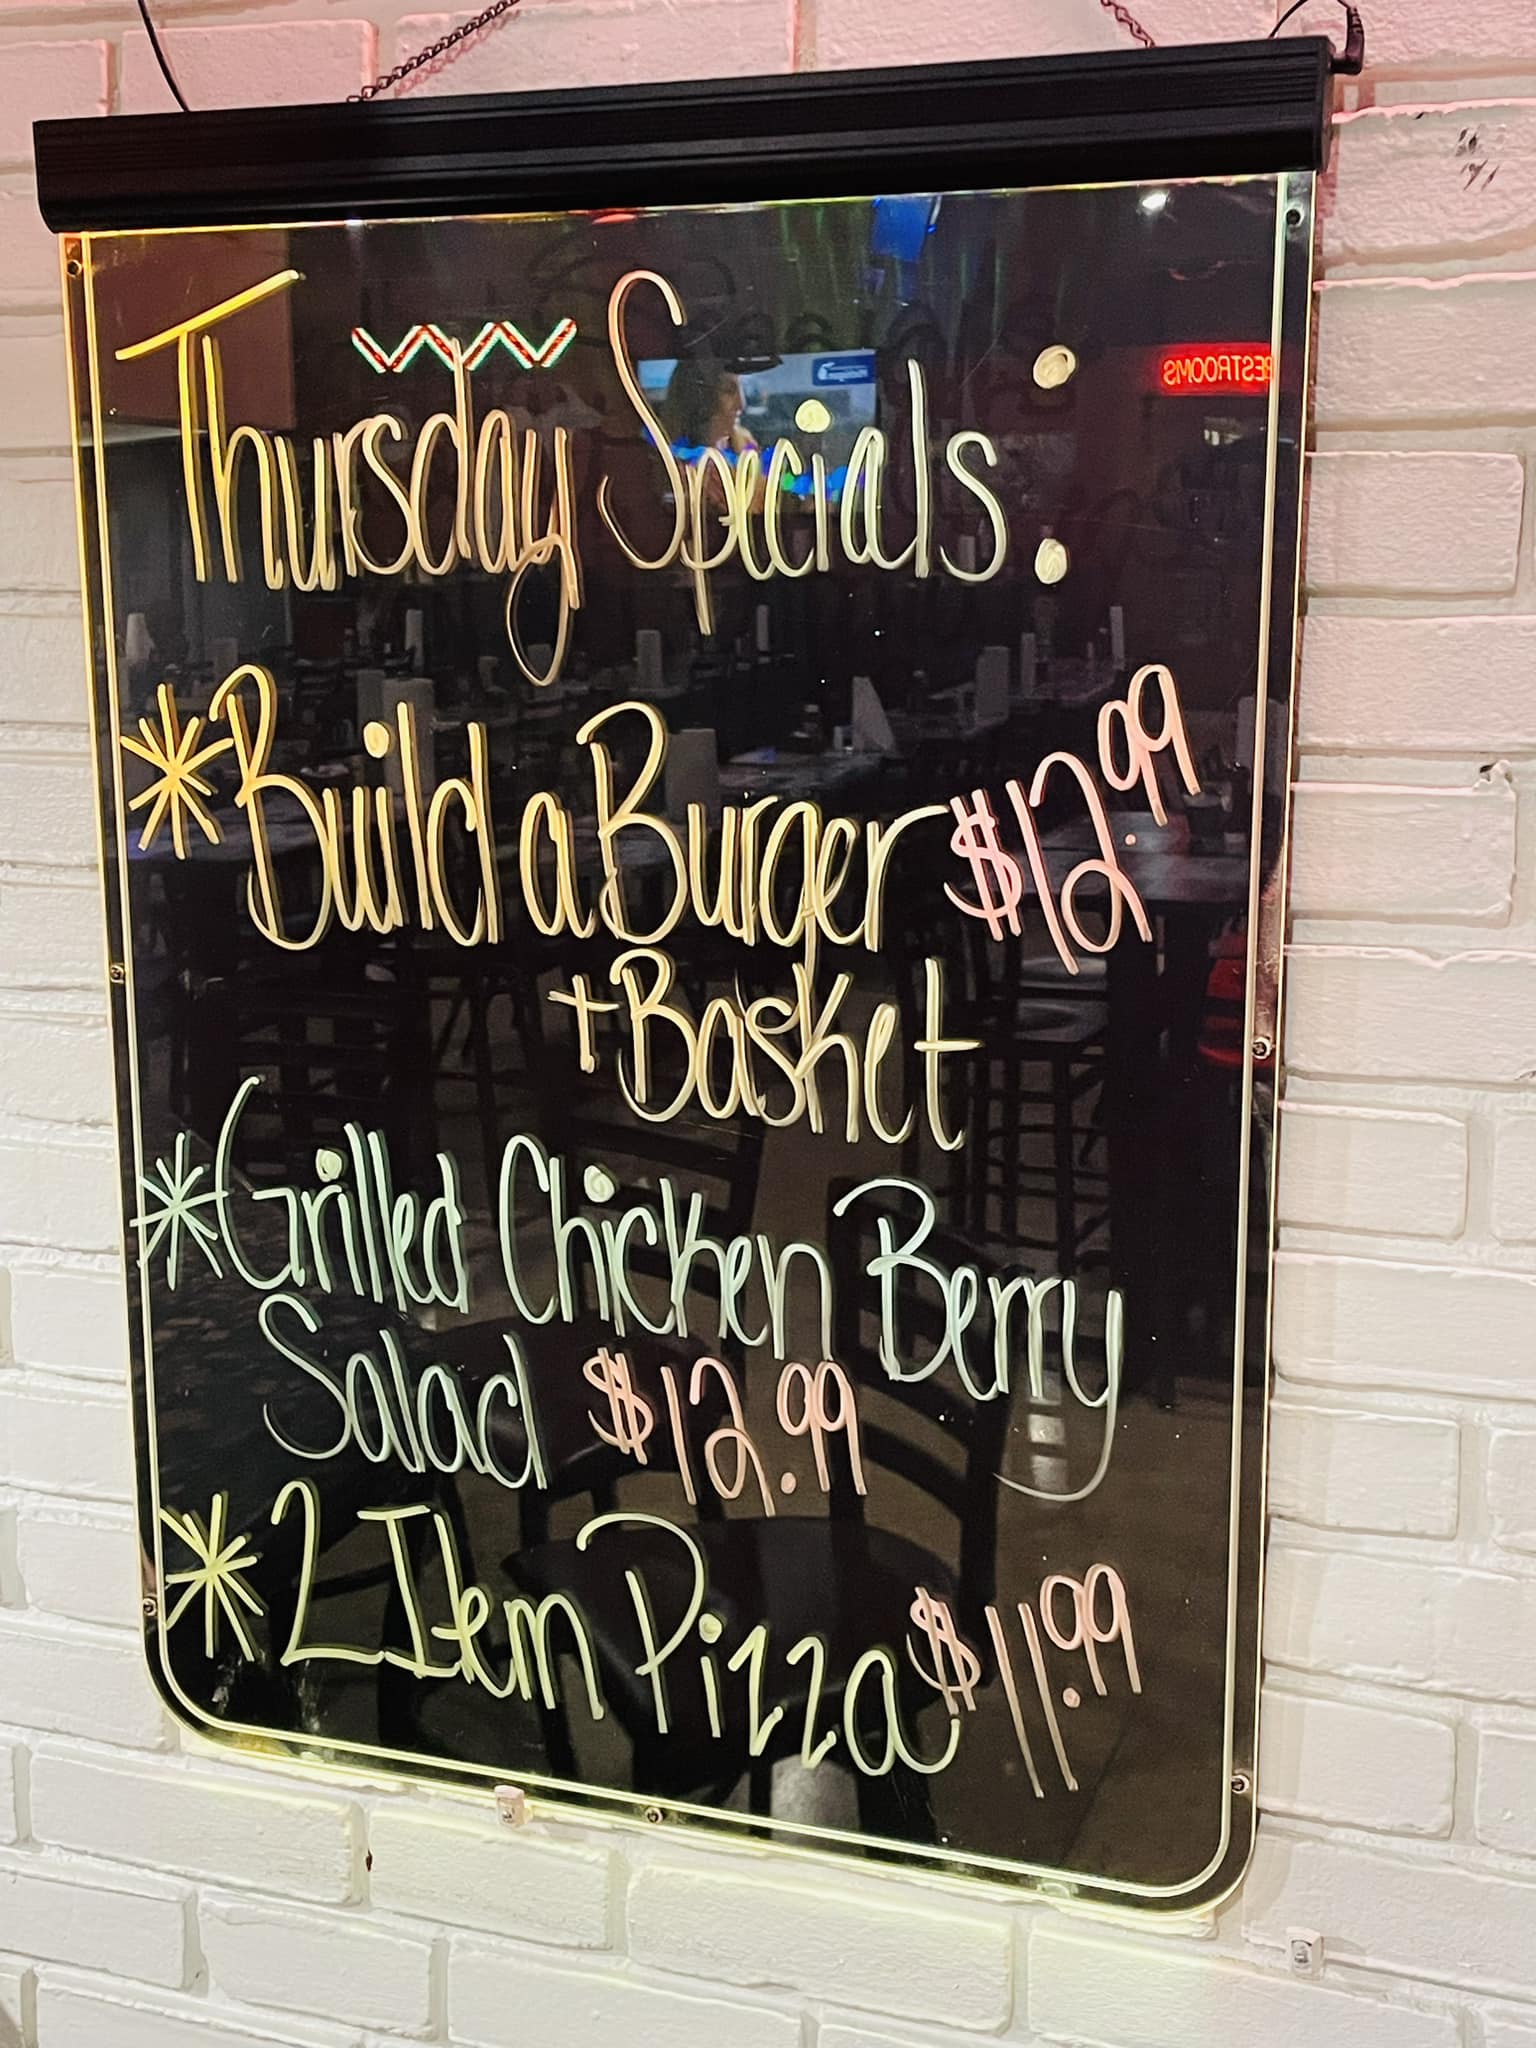 Thursday Specials:
*Build a Burger $12.99
+ Basket
*Grilled Chicken Berry
Salad $12.99
*2 Item Pizza $11.99
RESTROOMS